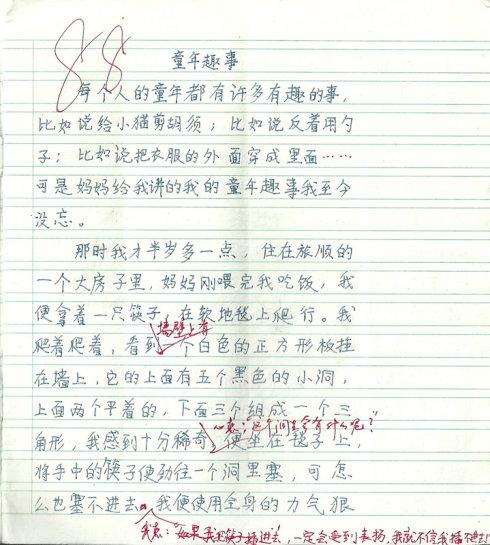 88
童年趣事
每个人的童年都有许多有趣的事，
比如说给小猫剪胡须；比如说反着用勺
子；比如说把衣服的外面穿成里面……
可是妈妈给我讲的我的童年趣事我至今
没忘。
那时我才半岁多一点，住在旅顺的
一个大房子里，妈妈刚喂完我吃饭，我
便拿着一只筷子，在软地毯上爬行。我
墙壁上有
爬着爬着，看到一个白色的正方形板挂
在墙上，它的上面有五个黑色的小洞，
上面两个平着的，下面三个组成一个三
心想："这个洞里会有什么呢？"
角形，我感到十分稀奇，便坐在毯子上，
将手中的筷子使劲往一个洞里塞，可怎
么也塞不进去。我便使用全身的力气狠
我想："如果我把筷子插进去，一定会受到表扬，我就不信我插不进去！"